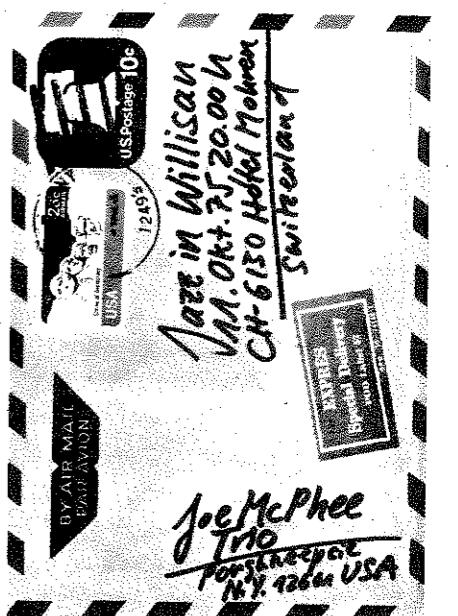 BY AIR MAIL
PAR AVION
USA
U.S.Postage 10c
Jazz in Willisau
11. Okt. 75 20.00 h
CH-6130 Hotel Mohren
Switzerland
EXPRÈS
Special Delivery
Joe McPhee
Trio
N.Y. 12601 USA